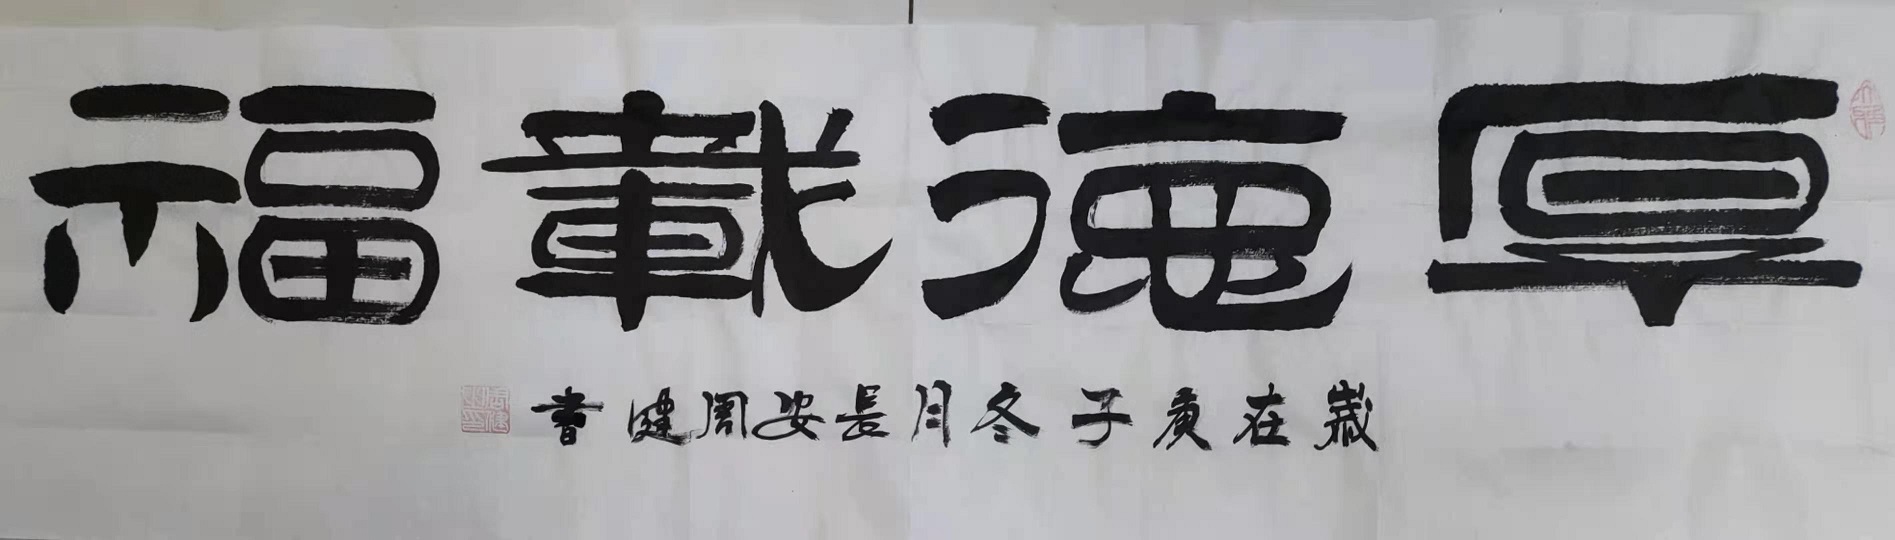 厚德載福
歲在庚子冬月長安周健書